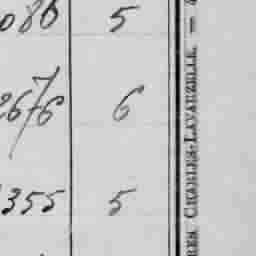 086 5
2676 6
355 5
RES CHARLES-LAVAUZELLE. —